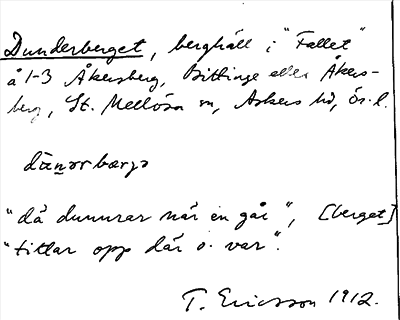 Dunderberget, berghäll i "Fallet"
å 1-3 Åkersberg, Bittinge eller Åkers-
berg, St. Mellösa sn, Askers hd, Ör. l.
"då dunnrar när en går", [berget]
"tittar opp där o. var".
T. Ericsson 1912.